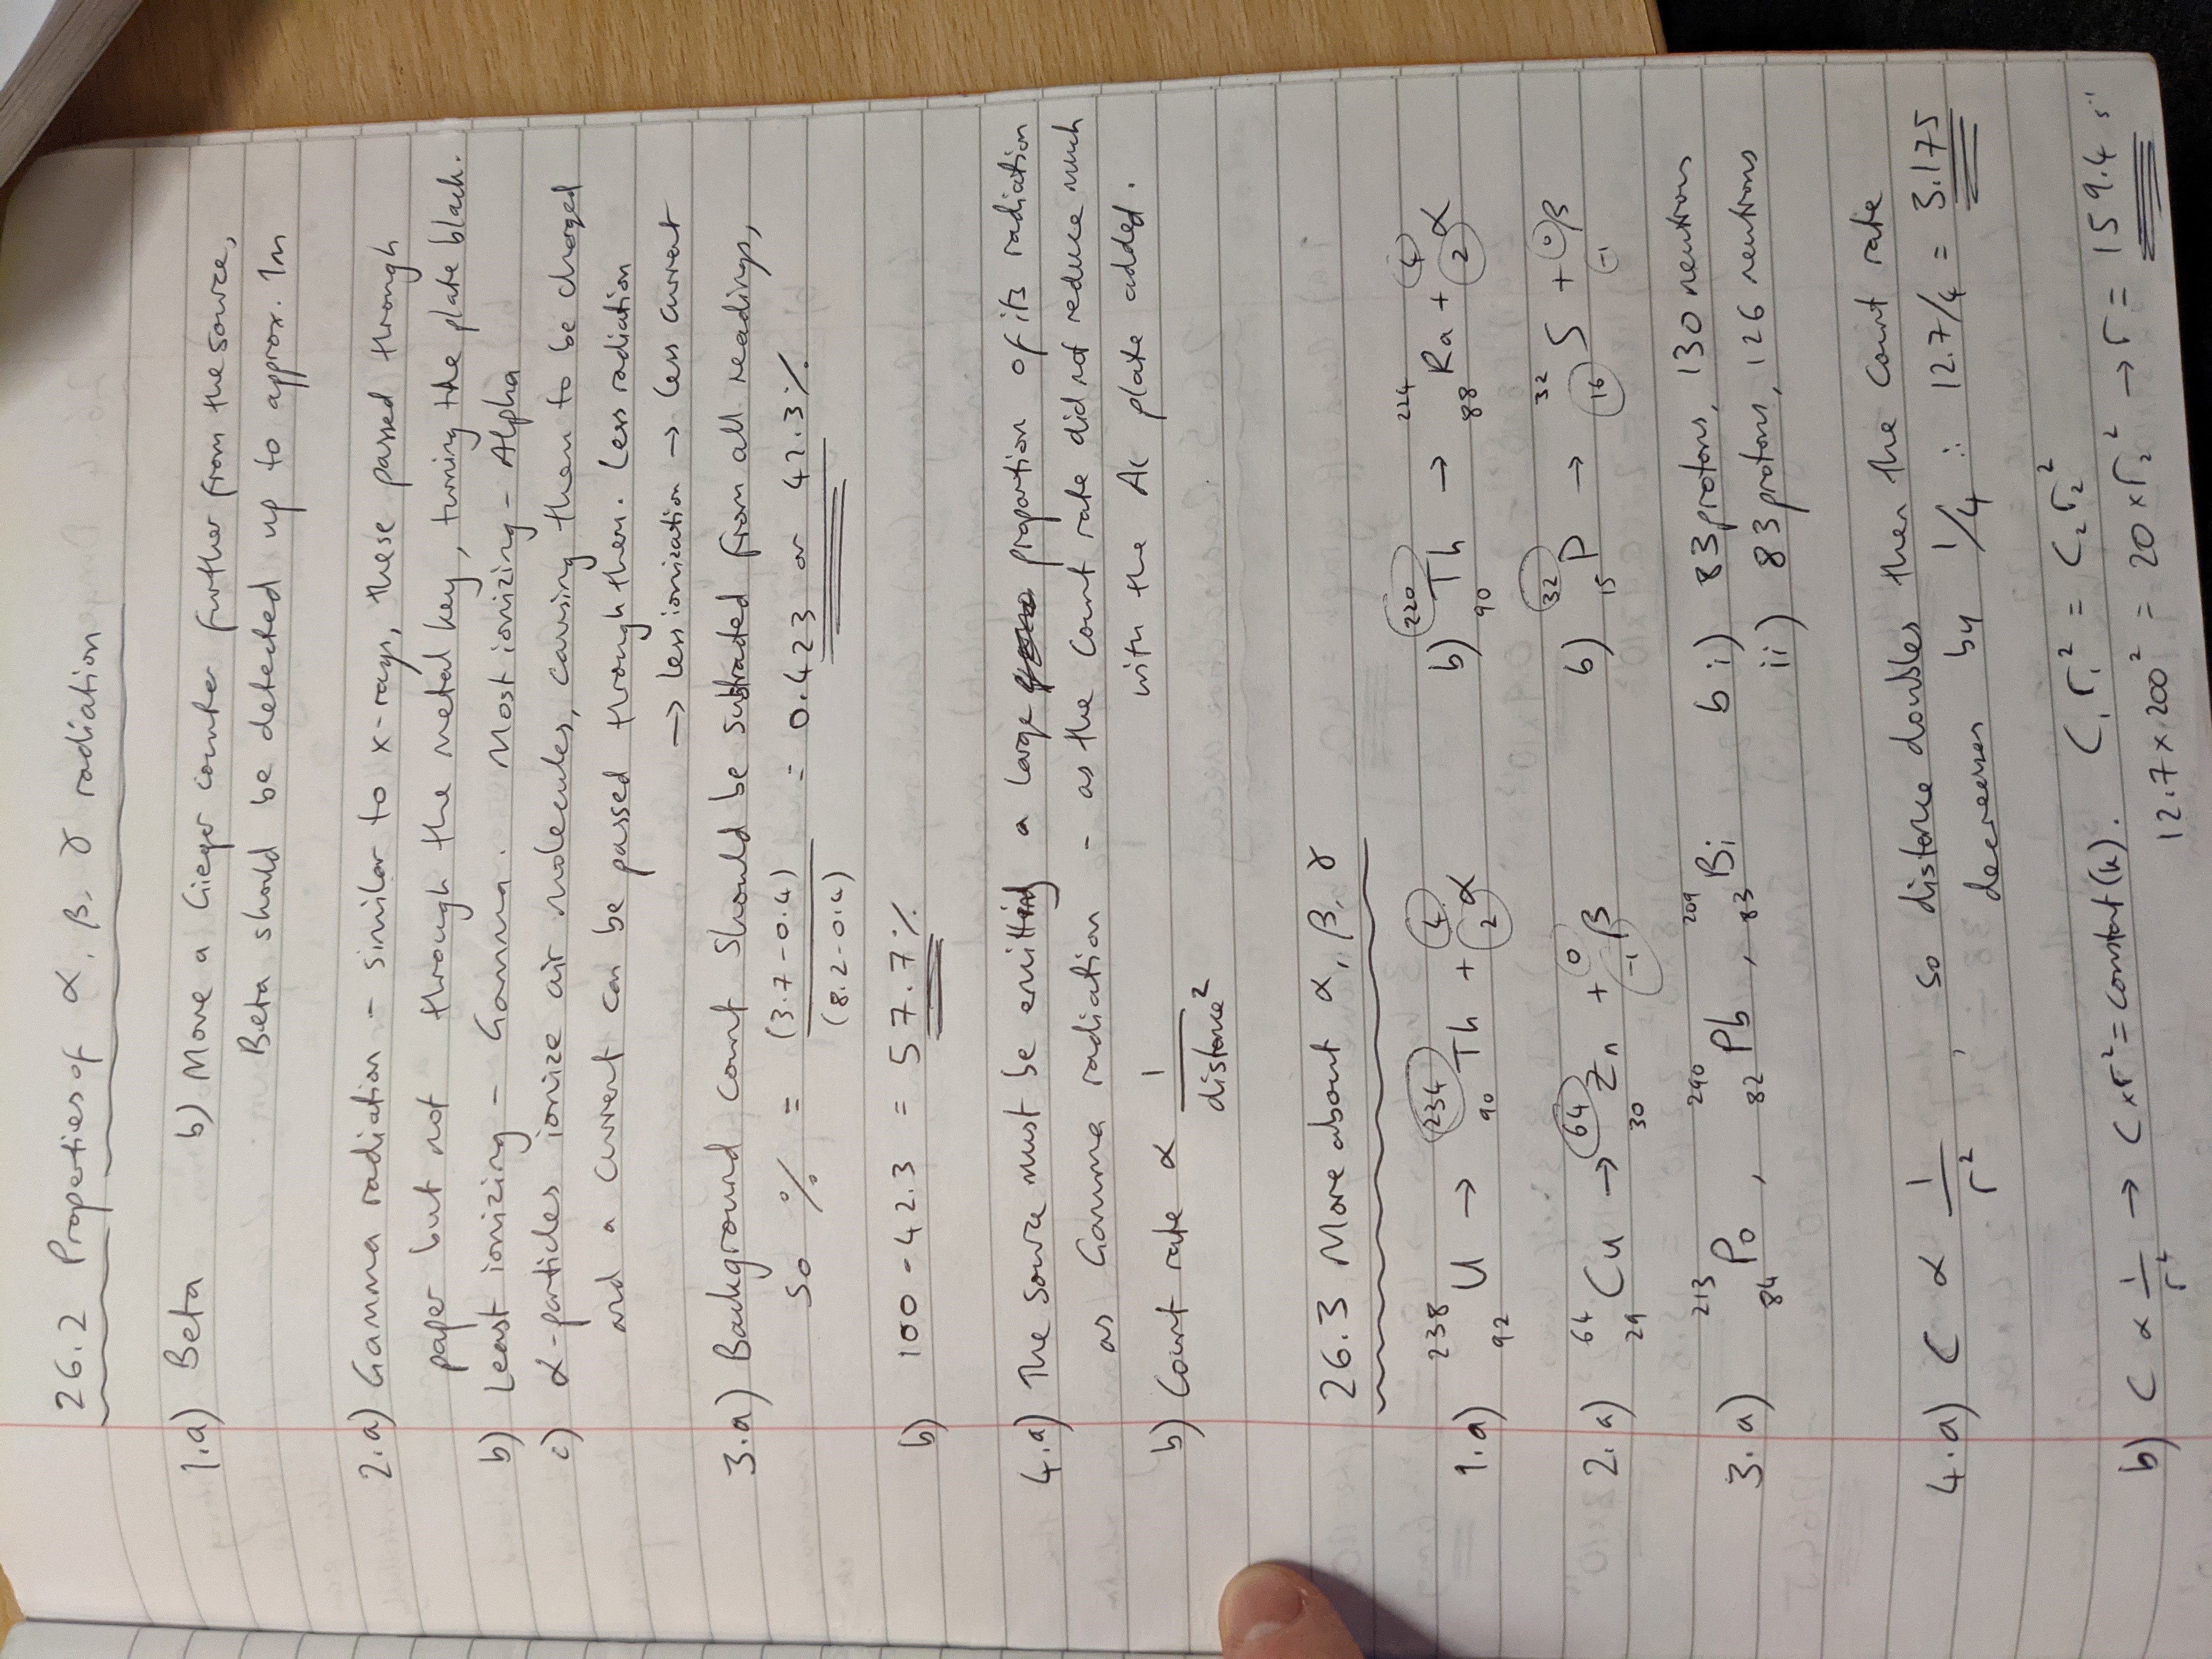 26.2 Properties of α, β, γ radiation
1.a) Beta b) Move a Gieger counter further from the source,
Beta should be detected up to approx. 1m
2.a) Gamma radiation - similar to x-rays, these passed through
paper but not through the metal key, turning the plate black.
b) Least ionizing - Gamma. Most ionizing - Alpha
c) α-particles ionize air molecules, causing them to be charged
and a current can be passed through them. Less radiation
→ less ionization → less current
3.a) Background count should be subtracted from all readings,
so % = (3.7-0.4) / (8.2-0.4) = 0.423 or 42.3%
b) 100 - 42.3 = 57.7%
4.a) The source must be emitting a large proportion of its radiation
as Gamma radiation - as the count rate did not reduce much
with the AL plate added.
b) Count rate ∝ 1 / distance²
26.3 More about α, β, γ
1.a) ²³⁸₉₂U → ²³⁴₉₀Th + ⁴₂α b) ²²⁰₉₀Th → ²²⁴₈₈Ra + ⁴₂α
2.a) ⁶⁴₂₉Cu → ⁶⁴₃₀Zn + ⁰₋₁β b) ³²₁₅P → ³²₁₆S + ⁰₋₁β
3.a) ²¹³₈₄Po, ²⁹⁰₈₂Pb, ²⁰⁹₈₃Bi b i) 83 protons, 130 neutrons
ii) 83 protons, 126 neutrons
4.a) C ∝ 1/r², so distance doubles then the count rate
decreases by 1/4 ∴ 12.7/4 = 3.175
b) C ∝ 1/r² → C×r² = constant (k). C₁r₁² = C₂r₂²
12.7 × 200² = 20 × r₂² → r = 159.4 s⁻¹